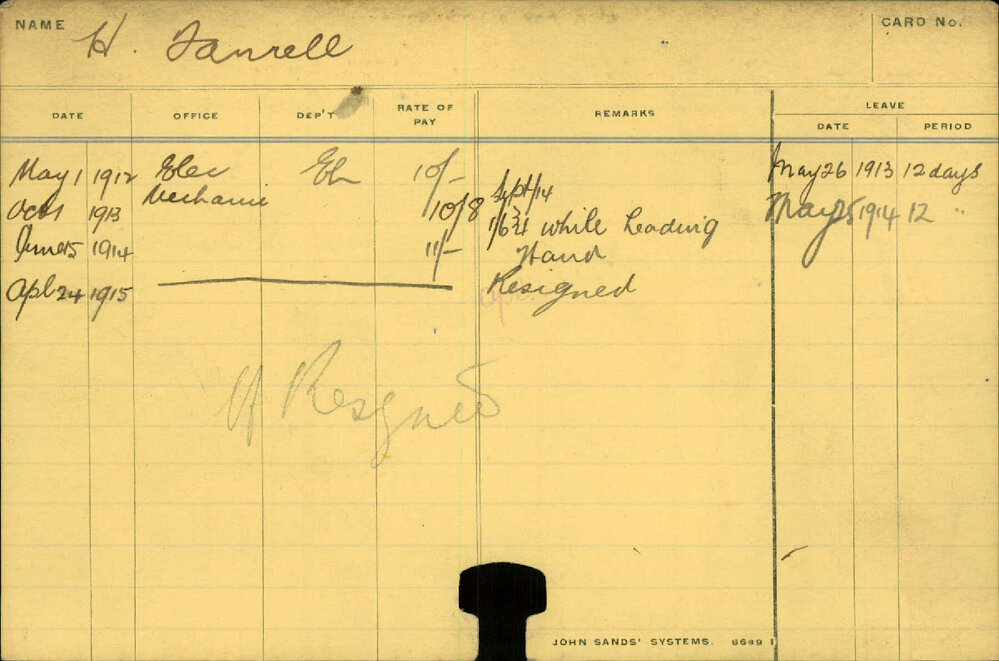 NAME H. Farrell CARD No.
DATE OFFICE DEP'T RATE OF PAY REMARKS LEAVE
DATE PERIOD
May 1 1912 Elec El 10/- May 26 1913 12 days
Mechanic Sept/14
Oct 1 1913 10/8 May 25 1914 12 "
while Leading
June 15 1914 11/- Hand
Apl 24 1915 Resigned
Resigned
JOHN SANDS' SYSTEMS. 8689